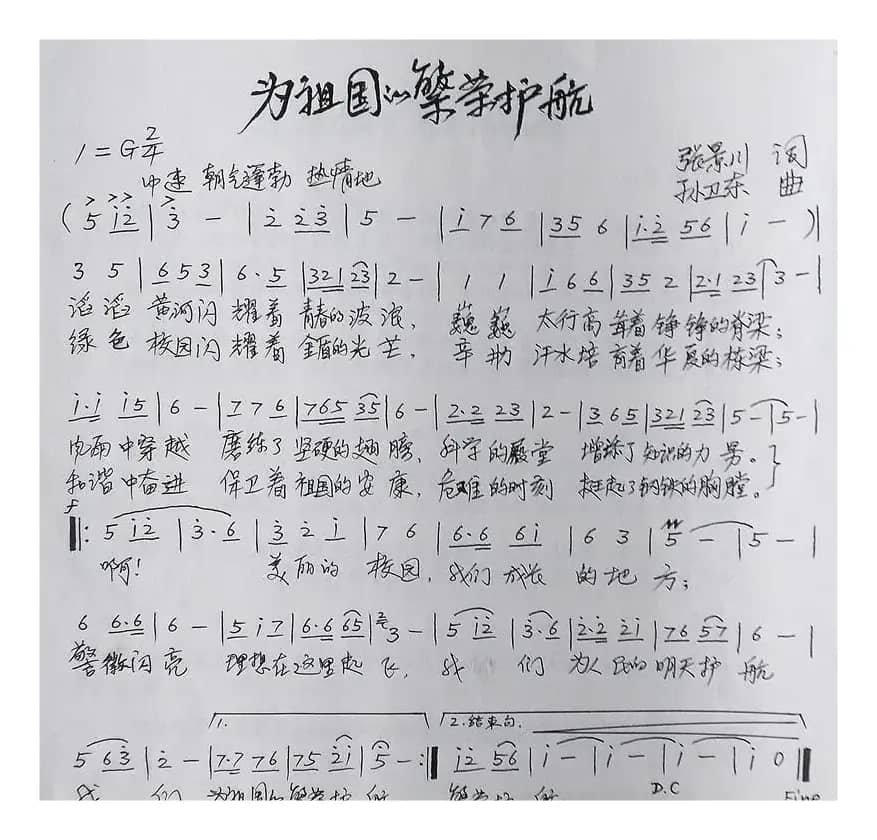 为祖国的繁荣护航
1=G 2/4
张景川 词
中速 朝气蓬勃 热情地
孙卫东 曲
( 5 i2 | 3 - | 2 23 | 5 - | i 7 6 | 35 6 | i·2 56 | i - ) |
3 5 | 6 5 3 | 6· 5 | 321 23 | 2 - | 1 1 | i 6 6 | 35 2 | 2·1 23 | 3 - |
滔滔 黄河闪耀着 青春的波浪, 巍巍 太行高耸着 铮铮的脊梁;
绿色 校园闪耀着 金盾的光芒, 辛勤 汗水培育着 华夏的栋梁;
i·i i5 | 6 - | 7 7 6 | 765 35 | 6 - | 2·2 23 | 2 - | 3 6 5 | 321 23 | 5 - | 5 - |
风雨中穿越 磨练了坚硬的翅膀, 科学的殿堂 增添了知识的力量。
和谐中奋进 保卫着祖国的安康, 危难的时刻 挺起了钢铁的胸膛。
f
‖: 5 i2 | 3· 6 | 3 2 i | 7 6 | 6·6 6i | 6 3 | 5 - | 5 - |
啊! 美丽的校园, 我们成长的地方;
6 6·6 | 6 - | 5 i 7 | 6·6 65 | 2 3 - | 5 i2 | 3·6 | 2·2 2i | 76 57 | 6 - |
警徽闪亮 理想在这里起飞, 我们 为人民的明天护航
1. 2.结束句.
5 63 | 2 - | 7·7 76 | 75 2i | 5 - :‖ i2 56 | i - | i - | i - | i 0 ‖
D.C
我们 为祖国的繁荣护航 繁荣护航 Fine